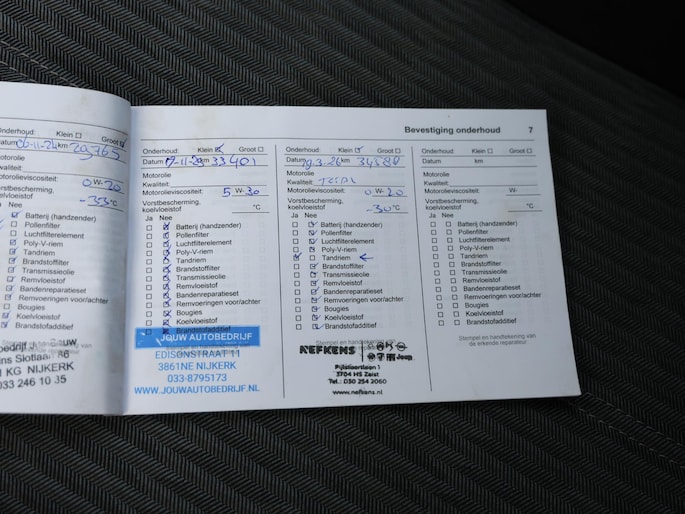 Bevestiging onderhoud 7
Onderhoud: Klein Groot
Datum 06-11-24 km 29765
Motorolie
Kwaliteit:
Motorolieviscositeit: 0 W- 20
Vorstbescherming,
koelvloeistof -33°C
Ja Nee
Batterij (handzender)
Pollenfilter
Luchtfilterelement
Poly-V-riem
Tandriem
Brandstoffilter
Transmissieolie
Remvloeistof
Bandenreparatieset
Remvoeringen voor/achter
Bougies
Koelvloeistof
Brandstofadditief
KG NIJKERK
033 246 10 35
Onderhoud: Klein Groot
Datum km 33401
Motorolie
Kwaliteit:
Motorolieviscositeit: 5 W- 30
Vorstbescherming,
koelvloeistof °C
Ja Nee
Batterij (handzender)
Pollenfilter
Luchtfilterelement
Poly-V-riem
Tandriem
Brandstoffilter
Transmissieolie
Remvloeistof
Bandenreparatieset
Remvoeringen voor/achter
Bougies
Koelvloeistof
Brandstofadditief
JOUW AUTOBEDRIJF
EDISONSTRAAT 11
3861NE NIJKERK
033-8795173
WWW.JOUWAUTOBEDRIJF.NL
Onderhoud: Klein Groot
Datum 19.3.26 km
Motorolie
Kwaliteit: TOTAL
Motorolieviscositeit: 0 W- 20
Vorstbescherming,
koelvloeistof -30°C
Ja Nee
Batterij (handzender)
Pollenfilter
Luchtfilterelement
Poly-V-riem
Tandriem ←
Brandstoffilter
Transmissieolie
Remvloeistof
Bandenreparatieset
Remvoeringen voor/achter
Bougies
Koelvloeistof
Brandstofadditief
NEFKENS Jeep
Pijlstaartlaan 1
3704 HS Zeist
Tel.: 030 254 2060
www.nefkens.nl
Onderhoud: Klein Groot
Datum km
Motorolie
Kwaliteit:
Motorolieviscositeit: W-
Vorstbescherming,
koelvloeistof °C
Ja Nee
Batterij (handzender)
Pollenfilter
Luchtfilterelement
Poly-V-riem
Tandriem
Brandstoffilter
Transmissieolie
Remvloeistof
Bandenreparatieset
Remvoeringen voor/achter
Bougies
Koelvloeistof
Brandstofadditief
Stempel en handtekening van
de erkende reparateur